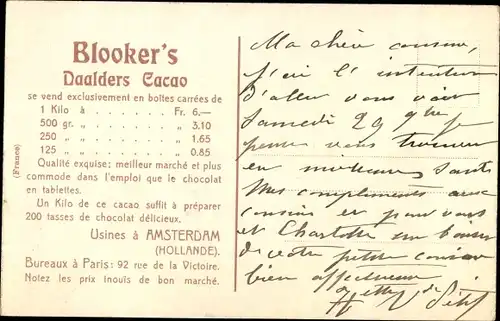 Blooker's
Daalders Cacao
se vend exclusivement en boîtes carrées de
1 Kilo à . . . . . . Fr. 6,—
500 gr. „ . . . . . . „ 3.10
250 „ „ . . . . . . „ 1.65
125 „ „ . . . . . . „ 0.85
Qualité exquise; meilleur marché et plus
commode dans l'emploi que le chocolat
en tablettes.
Un Kilo de ce cacao suffit à préparer
200 tasses de chocolat délicieux.
Usines à AMSTERDAM
(HOLLANDE).
Bureaux à Paris: 92 rue de la Victoire.
Notez les prix inouïs de bon marché.
(France)
Ma chère cousine,
j'ai l'intention
d'aller vous voir
Samedi 29 9bre je
pense vous trouver
en meilleure santé
Mes compliments aux
cousins et pour vous
et Charlotte un baiser
de votre petite cousine
bien affectueuse
de